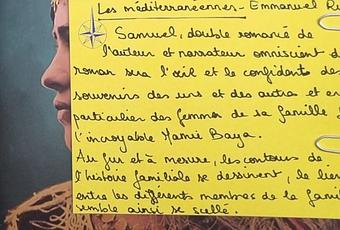 Les méditerranéennes - Emmanuel Ru
Samuel, double romancé de
l'auteur et narrateur omniscient d
roman sera l'œil et le confident des
souvenirs des uns et des autres et en
particulier des femmes de sa famille d
l'incroyable Mamie Baya.
Au fur et à mesure, les contours de
l'histoire familiale se dessinent, le lien
entre les différents membres de la fami
semble ainsi se scellé.